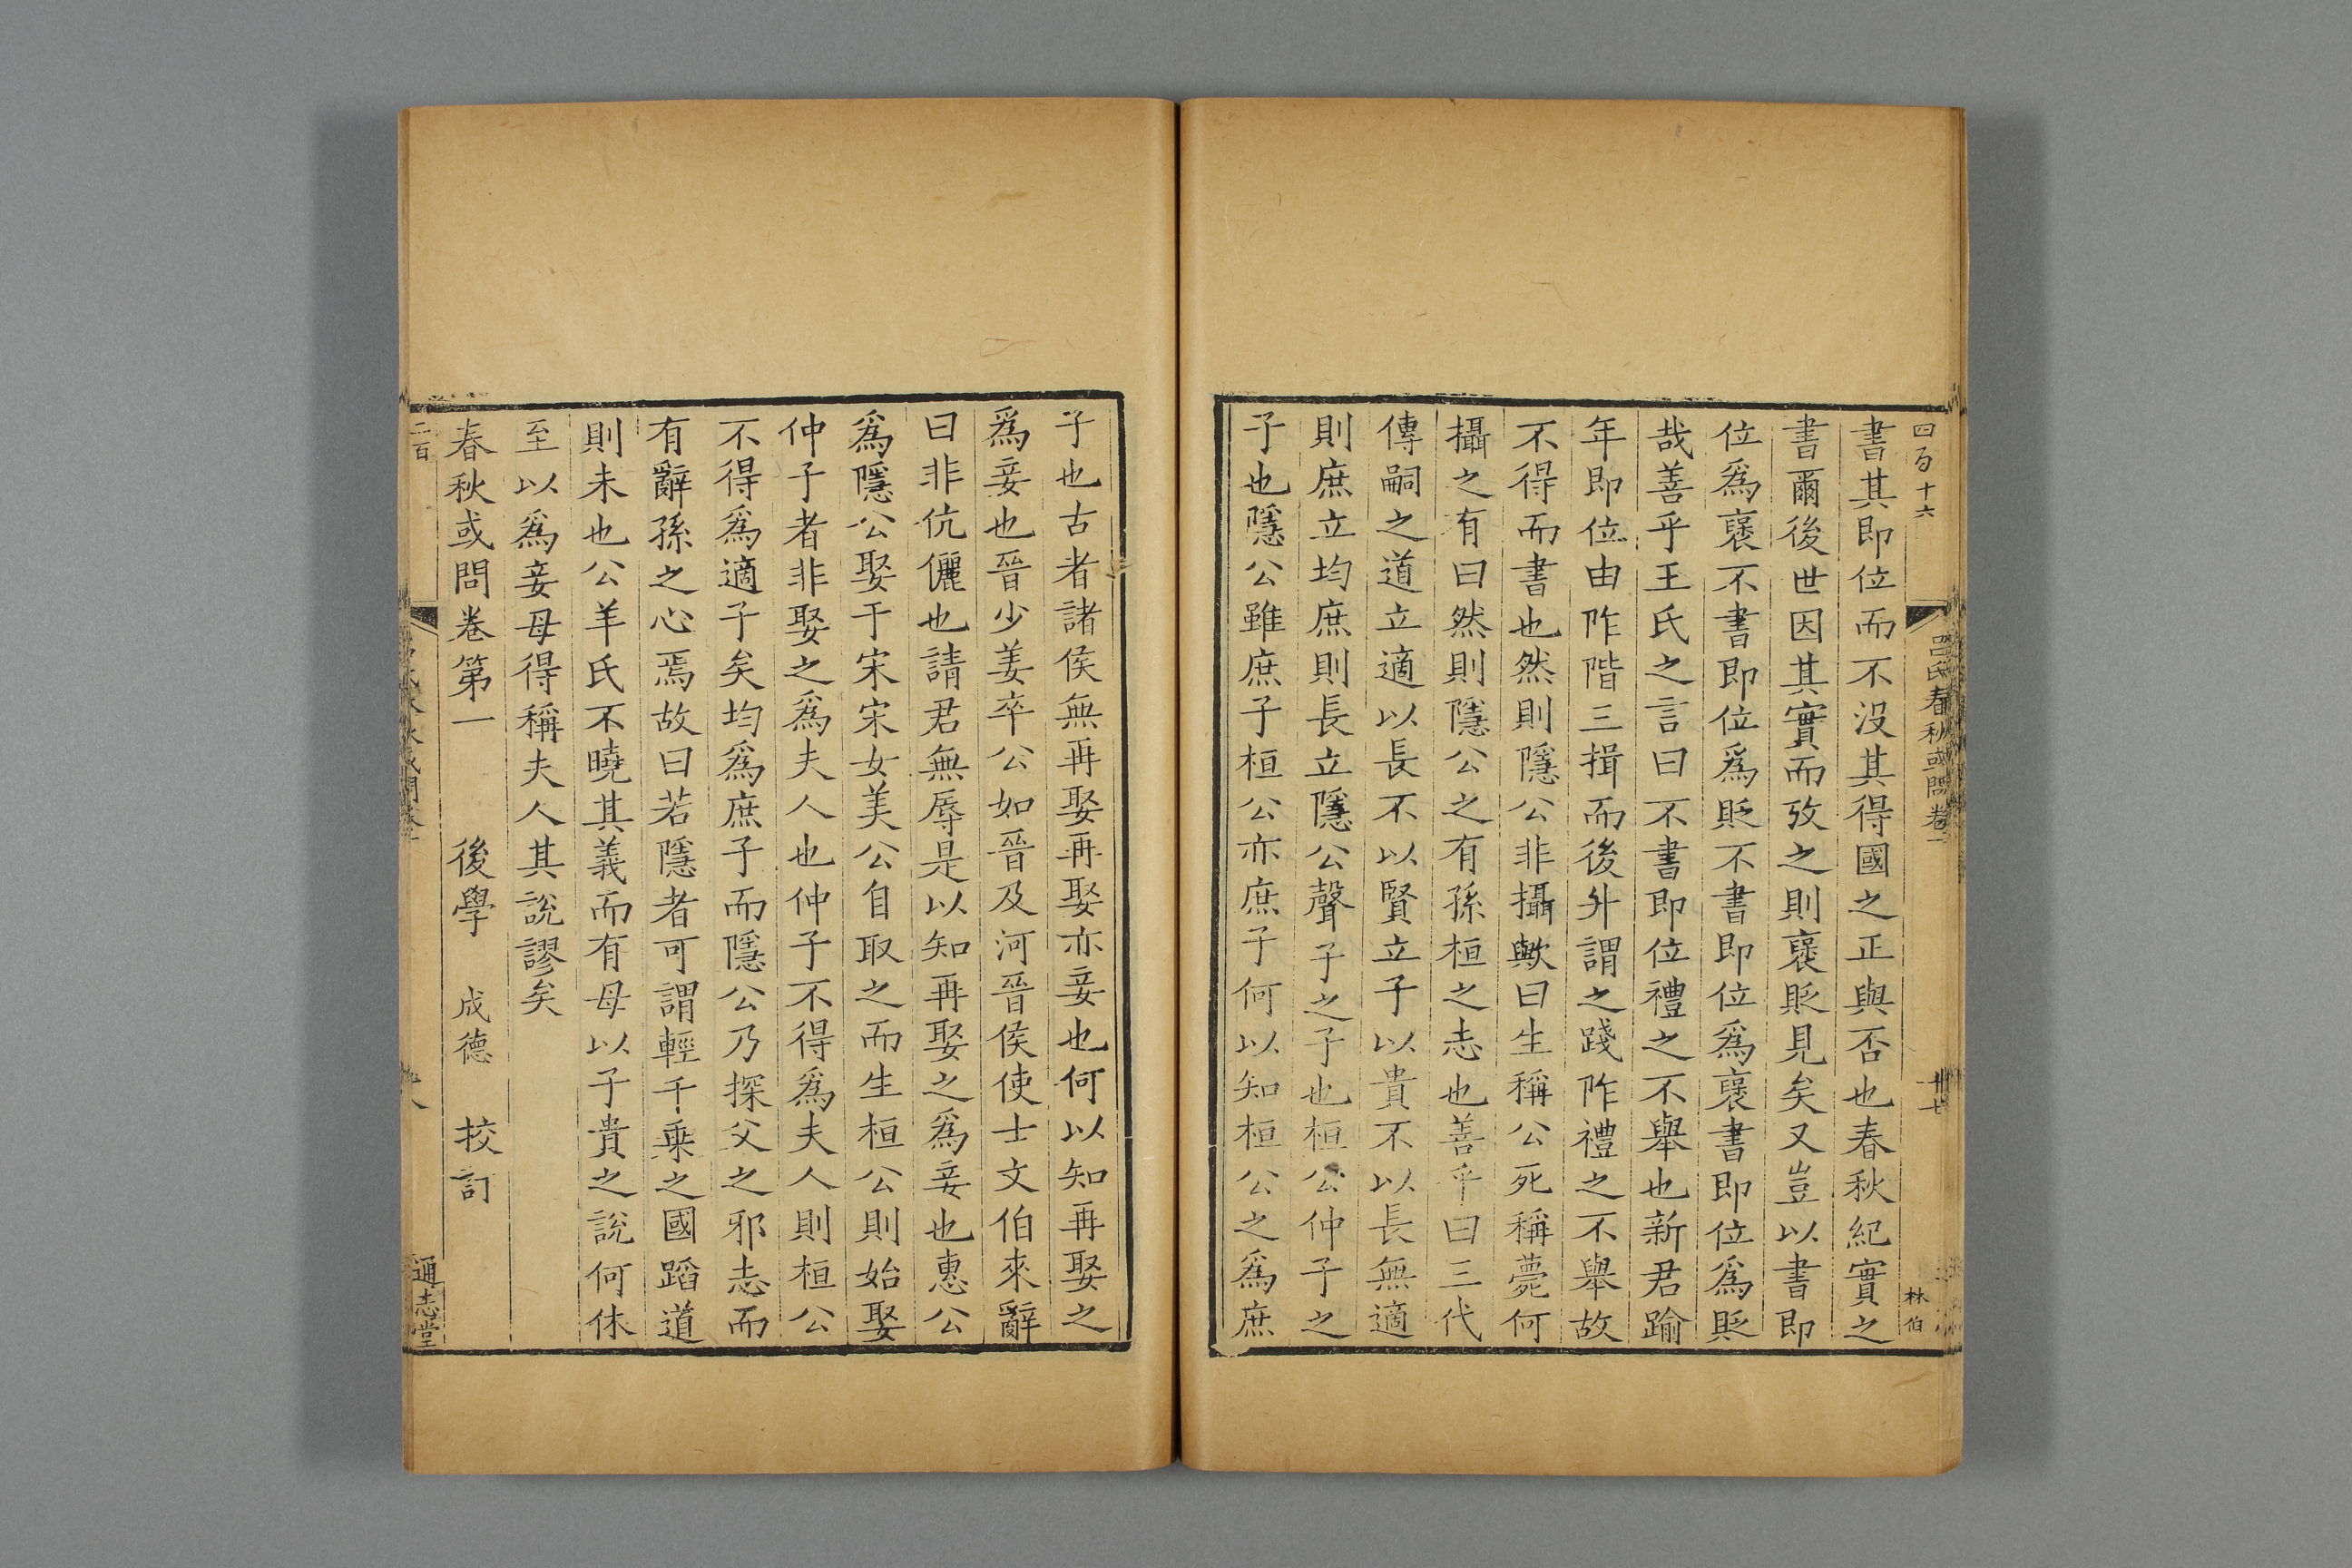 四百十六
呂氏春秋或問卷一
十七
林伯
書其即位而不沒其得國之正與否也春秋紀實之
書爾後世因其實而攷之則褒貶見矣又豈以書即
位爲褒不書即位爲貶不書即位爲褒書即位爲貶
哉善乎王氏之言曰不書即位禮之不舉也新君踰
年即位由阼階三揖而後升謂之踐阼禮之不舉故
不得而書也然則隱公非攝歟曰生稱公死稱薨何
攝之有曰然則隱公之有孫桓之志也善乎曰三代
傳嗣之道立適以長不以賢立子以貴不以長無適
則庶立均庶則長立隱公聲子之子也桓公仲子之
子也隱公雖庶子桓公亦庶子何以知桓公之爲庶
子也古者諸侯無再娶再娶亦妾也何以知再娶之
爲妾也晉少姜卒公如晉及河晉侯使士文伯來辭
曰非伉儷也請君無辱是以知再娶之爲妾也惠公
爲隱公娶于宋宋女美公自取之而生桓公則始娶
仲子者非娶之爲夫人也仲子不得爲夫人則桓公
不得爲適子矣均爲庶子而隱公乃探父之邪志而
有辭孫之心焉故曰若隱者可謂輕千乘之國蹈道
則未也公羊氏不曉其義而有母以子貴之說何休
至以爲妾母得稱夫人其說謬矣
春秋或問卷第一　後學　成德　挍訂
二百
通志堂